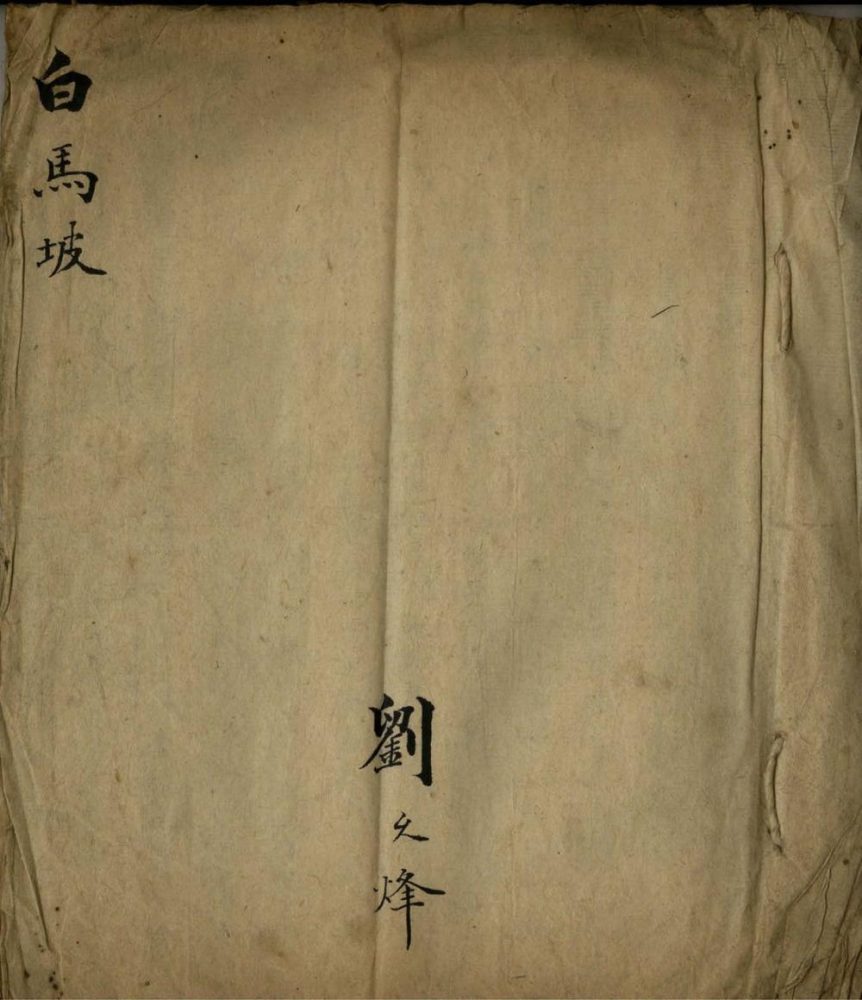 白馬坡
劉文烽